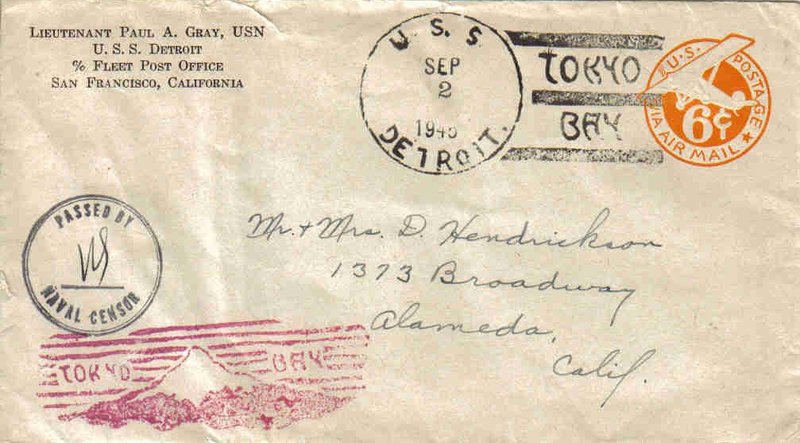 LIEUTENANT PAUL A. GRAY, USN
U. S. S. DETROIT
% FLEET POST OFFICE
SAN FRANCISCO, CALIFORNIA
U. S. S.
SEP
2
1945
DETROIT.
TOKYO
BAY
U.S. POSTAGE
6¢
VIA AIR MAIL
PASSED BY
NAVAL CENSOR
Mr. + Mrs. D. Hendrickson
1373 Broadway
Alameda,
Calif.
TOKYO BAY